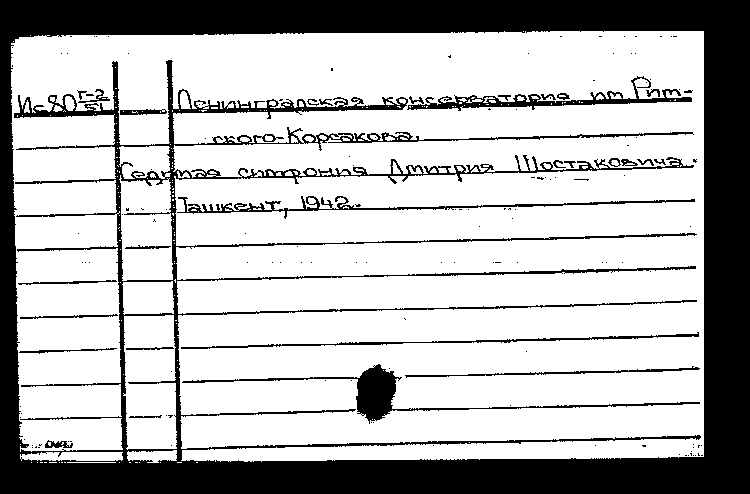 Ис80 Г-2/51 Ленинградская консерватория им Рим-
ского-Корсакова.
Седьмая симфония Дмитрия Шостаковича.
Ташкент, 1942.